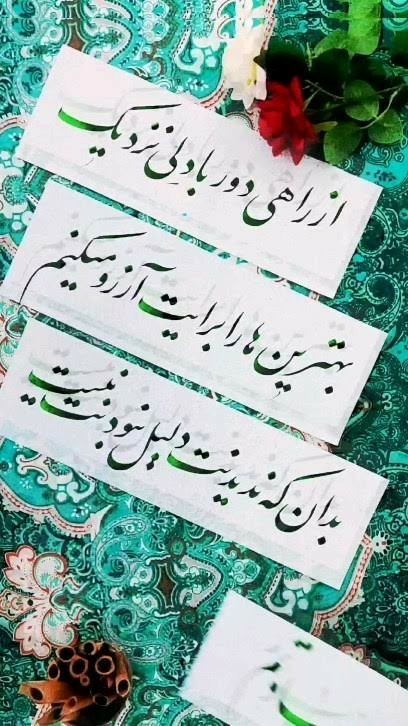 از راهی دور با دلی نزدیک
بهترین ها را برایت آرزو میکنیم
بدان که ندیدنت دلیل نبودنت نیست